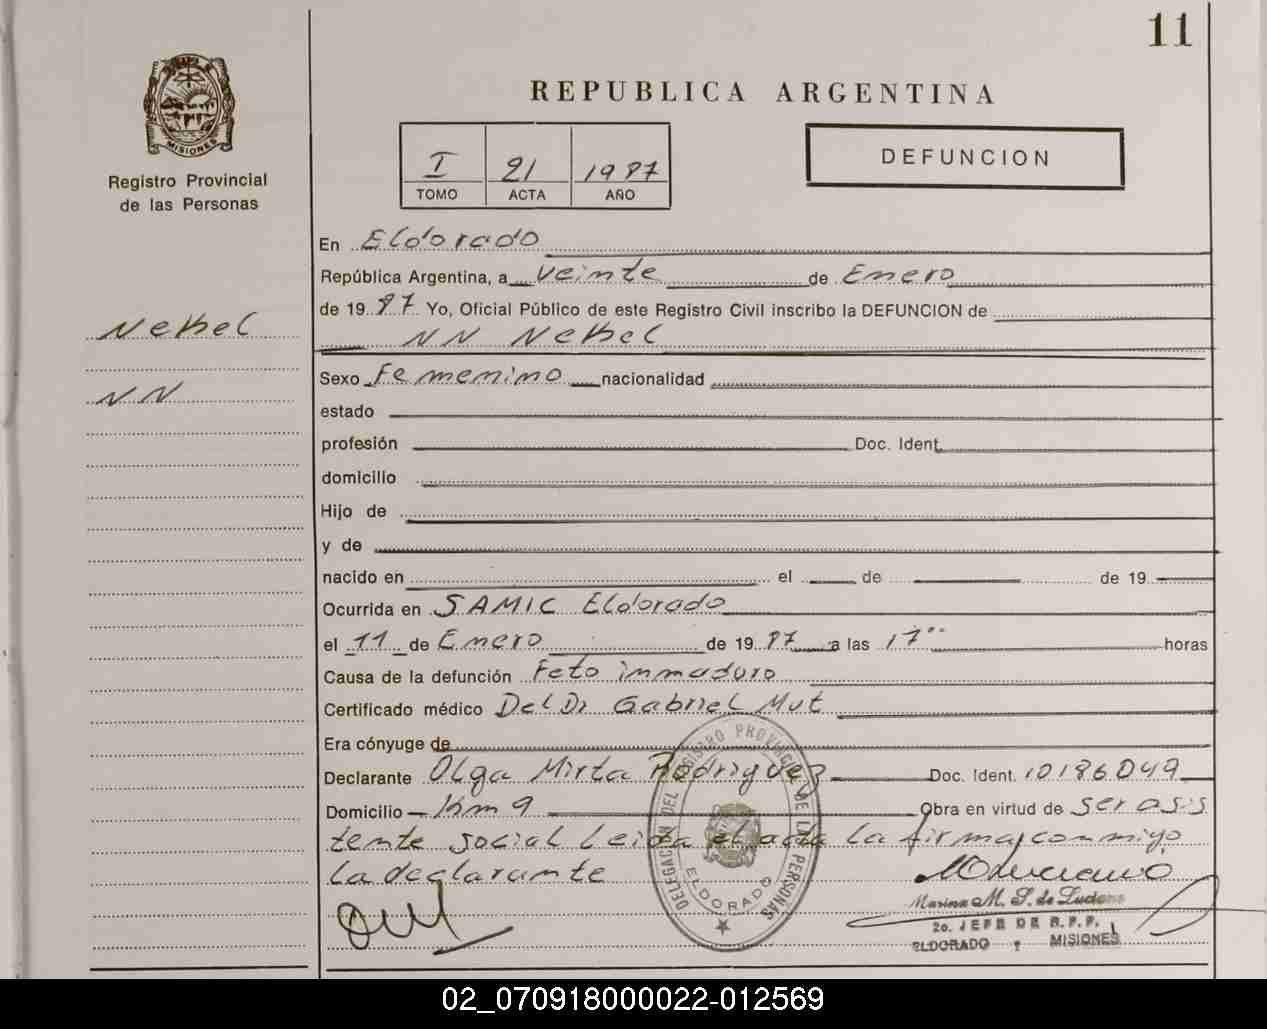 11
REPUBLICA ARGENTINA
MISIONES
Registro Provincial
de las Personas
I 21 1987
TOMO ACTA AÑO
DEFUNCION
En Eldorado
República Argentina, a veinte de Enero
de 19 87 Yo, Oficial Público de este Registro Civil inscribo la DEFUNCION de
NN
Sexo Femenino nacionalidad
NN
estado
profesión Doc. Ident.
domicilio
Hijo de
y de
nacido en el de de 19
Ocurrida en SAMIC Eldorado
el 11 de Enero de 19 87 a las 17 horas
Causa de la defunción Feto inmaduro
Certificado médico Del Dr Gabriel Mut
Era cónyuge de
Declarante Olga Mirta Rodriguez Doc. Ident. 10186049
Domicilio Km 9 Obra en virtud de ser asis
tente social Leida el acta La firma conmigo
La declarante
DELEGACION DEL REGISTRO PROVINCIAL DE LAS PERSONAS
ELDORADO
Marina M. S. de
2o. JEFE DE R.P.P.
ELDORADO MISIONES
02_070918000022-012569